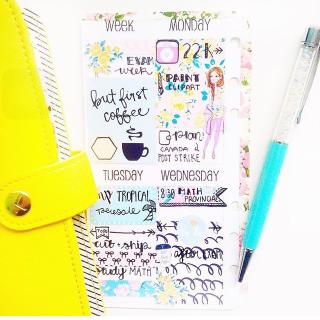 WEEK
MONDAY
EXAM
week
22K
but first
coffee
PAINT
CLIPART
plan
CANADA
POST STRIKE
TUESDAY
WEDNESDAY
TROPICAL
8:30 MATH
PROVINCIAL
cut + ship
study MATH